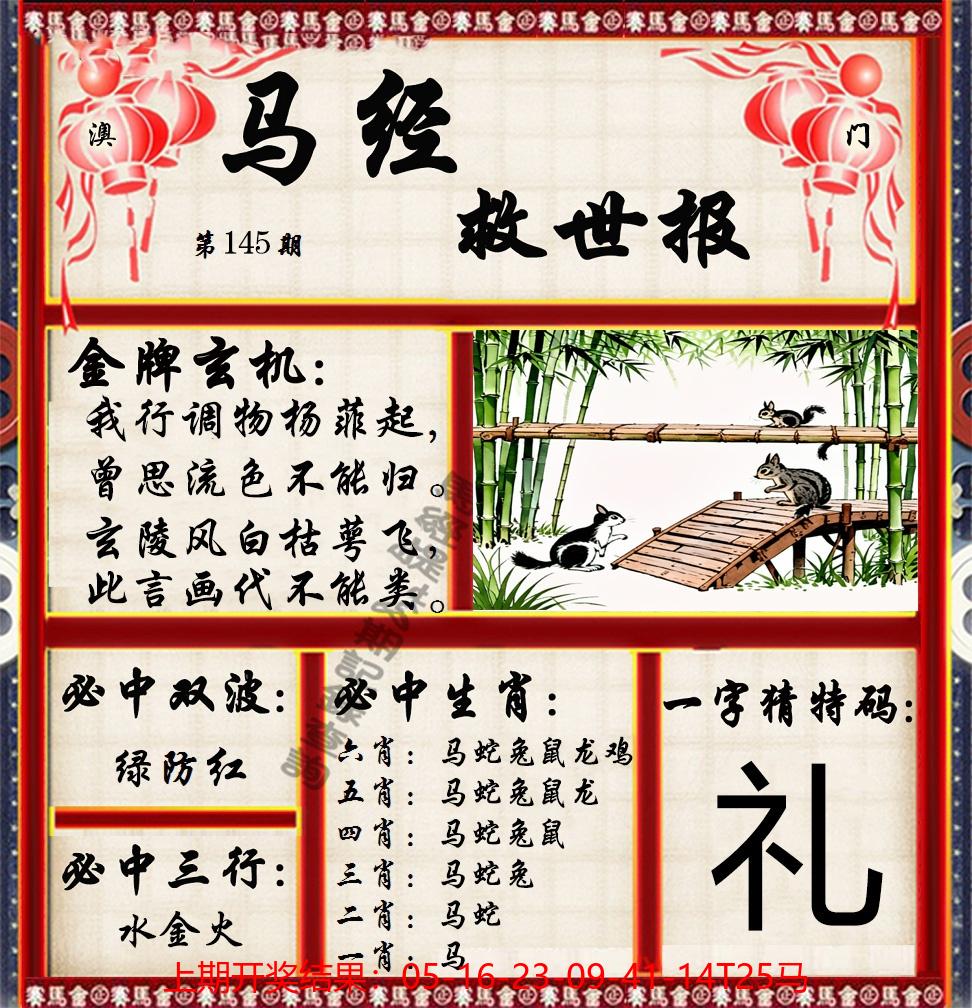 澳
门
马经
救世报
第145期
金牌玄机：
我行调物杨菲起，
曾思流色不能归。
玄陵风白枯萼飞，
此言画代不能类。
必中双波：
绿防红
必中三行：
水金火
必中生肖：
六肖：马蛇兔鼠龙鸡
五肖：马蛇兔鼠龙
四肖：马蛇兔鼠
三肖：马蛇兔
二肖：马蛇
一肖：马
一字猜特码：
礼
上期开奖结果：05-16-23-09-41-14T25马